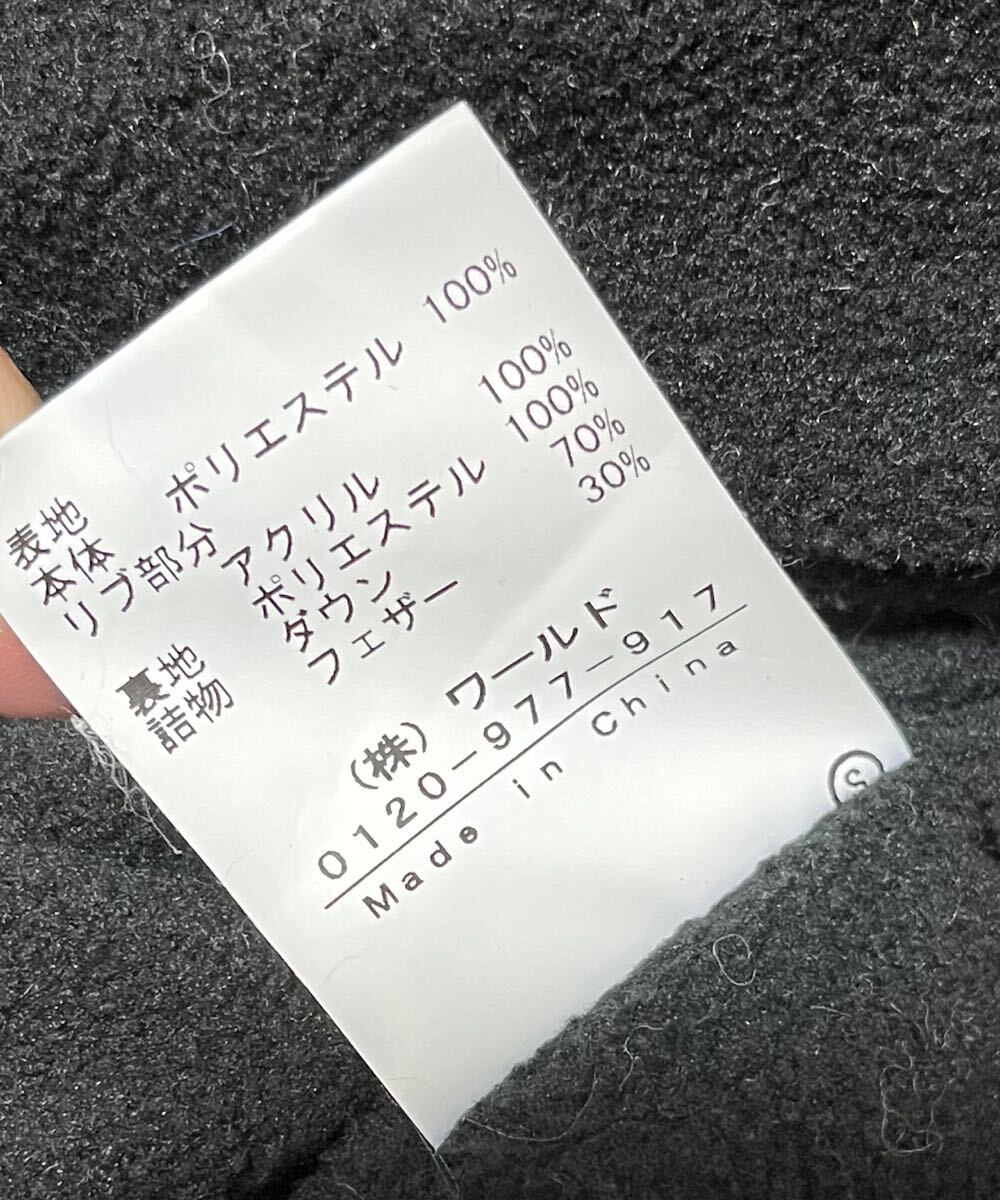 表地
本体 ポリエステル 100%
リブ部分
アクリル 100%
裏地 ポリエステル 100%
詰物 ダウン 70%
フェザー 30%
(株) ワールド
0120-977-917
Made in China
S